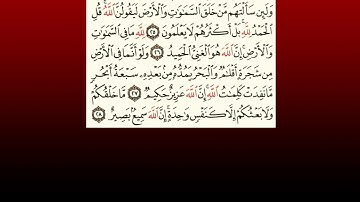 وَلَئِن سَأَلْتَهُم مَّنْ خَلَقَ ٱلسَّمَٰوَٰتِ وَٱلْأَرْضَ لَيَقُولُنَّ ٱللَّهُ ۚ قُلِ
ٱلْحَمْدُ لِلَّهِ ۚ بَلْ أَكْثَرُهُمْ لَا يَعْلَمُونَ ٢٥ لِلَّهِ مَا فِى ٱلسَّمَٰوَٰتِ
وَٱلْأَرْضِ ۚ إِنَّ ٱللَّهَ هُوَ ٱلْغَنِىُّ ٱلْحَمِيدُ ٢٦ وَلَوْ أَنَّمَا فِى ٱلْأَرْضِ
مِن شَجَرَةٍ أَقْلَٰمٌ وَٱلْبَحْرُ يَمُدُّهُۥ مِنۢ بَعْدِهِۦ سَبْعَةُ أَبْحُرٍ
مَّا نَفِدَتْ كَلِمَٰتُ ٱللَّهِ ۗ إِنَّ ٱللَّهَ عَزِيزٌ حَكِيمٌ ٢٧ مَّا خَلْقُكُمْ
وَلَا بَعْثُكُمْ إِلَّا كَنَفْسٍ وَٰحِدَةٍ ۗ إِنَّ ٱللَّهَ سَمِيعٌۢ بَصِيرٌ ٢٨